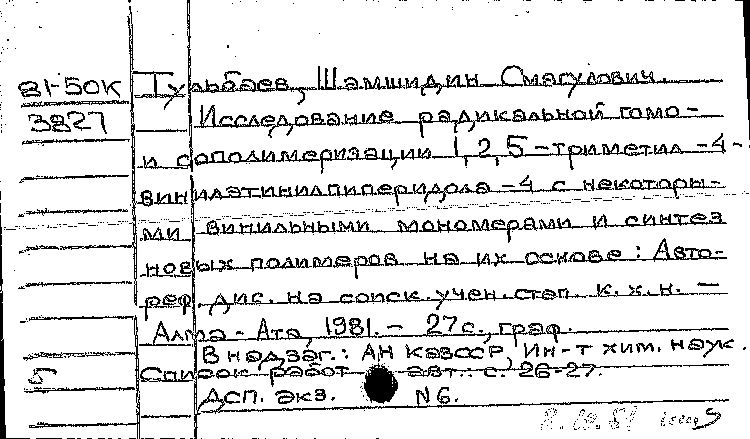 81-50К Тульбаев, Шамшидин Смагулович.
3827 Исследование радикальной гомо-
и сополимеризации 1,2,5-триметил-4-
винилэтинилпиперидола-4 с некоторы-
ми винильными мономерами и синтез
новых полимеров на их основе: Авто-
реф. дис. на соиск. учен. степ. к.х.н. —
Алма-Ата, 1981. — 27с., граф.
В надзаг.: АН КазССР, Ин-т хим. наук.
5 Список работ авт.: с. 26-27.
Дсп. экз. N 6.